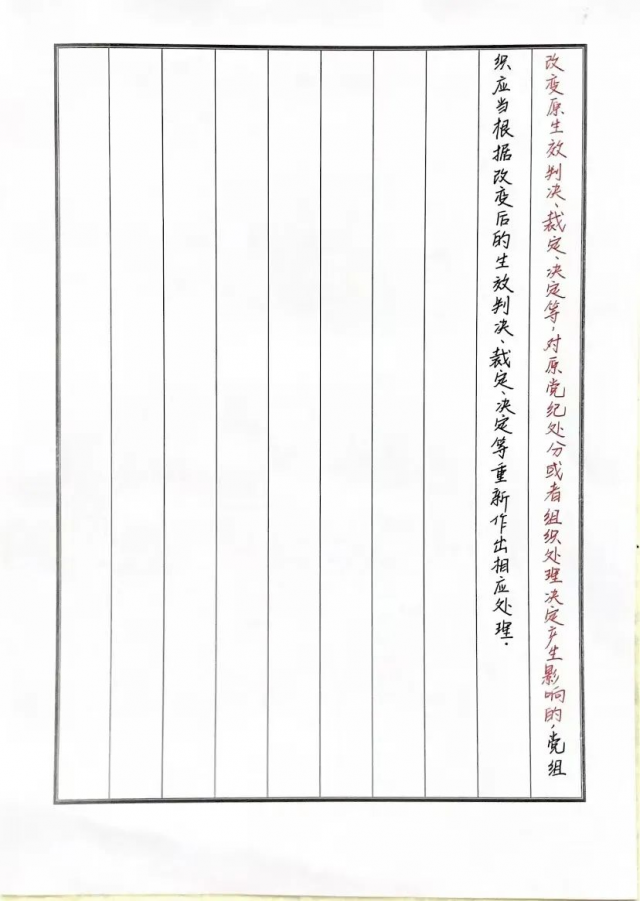 改变原生效判决、裁定、决定等，对原党纪处分或者组织处理决定产生影响的，党组
织应当根据改变后的生效判决、裁定、决定等重新作出相应处理。